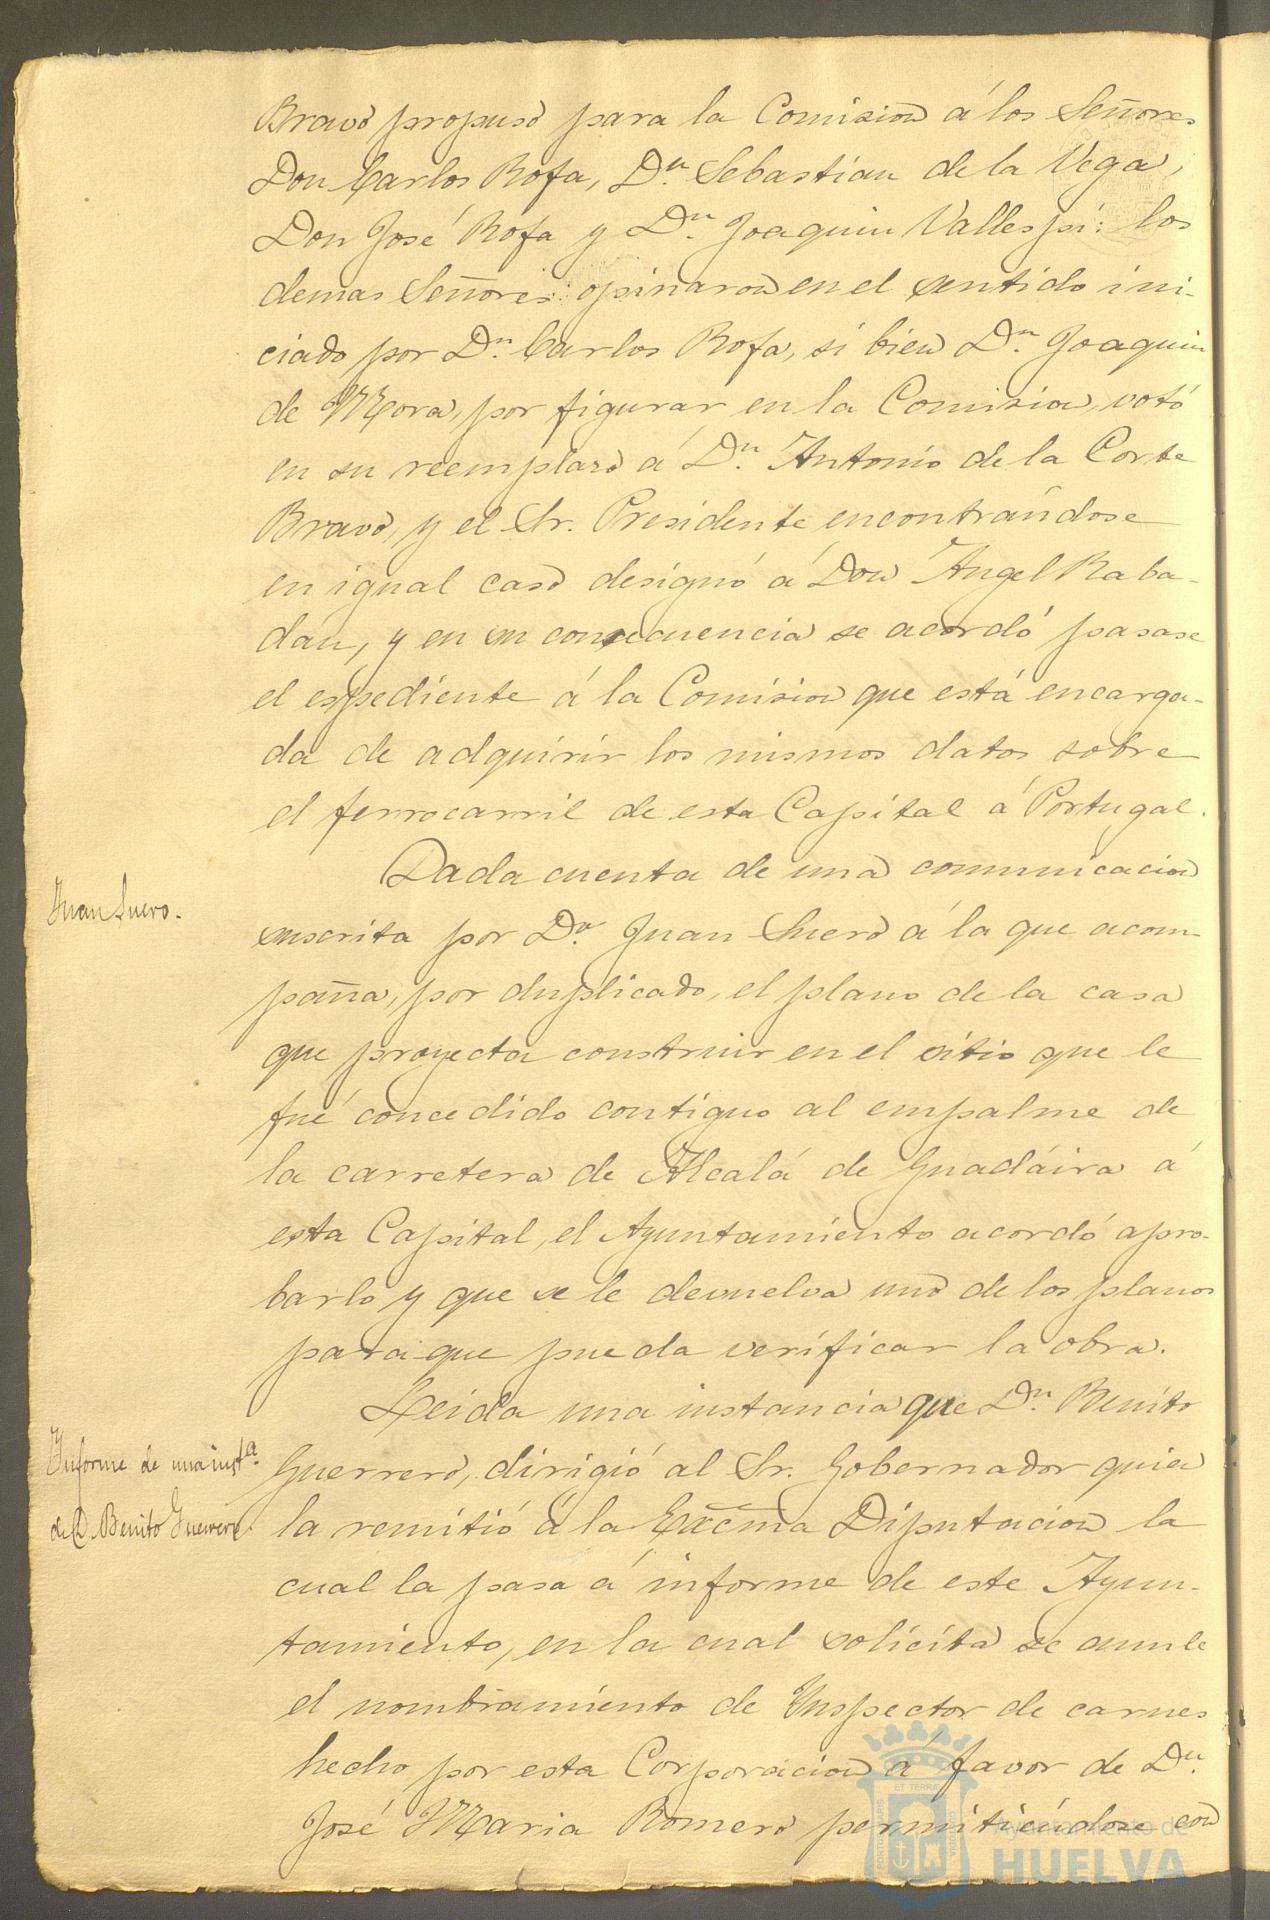 Bravo propuso para la Comision á los Señores
Don Carlos Rofa, Dn. Sebastian de la Vega,
Don José Rofa y Dn. Joaquin Vallespi: los
demas Señores opinaron en el sentido ini-
ciado por Dn. Carlos Rofa, si bien Dn. Joaquin
de Mora, por figurar en la Comision, votó
en su reemplazo á Dn. Antonio de la Corte
Bravo, y el Sr. Presidente encontrándose
en igual caso designó á Don Ángel Raba-
dan, y en su consecuencia se acordó pasase
el espediente á la Comision que está encarga-
da de adquirir los mismos datos sobre
el ferrocarril de esta Capital á Portugal.
Juan Suero.
Dada cuenta de una comunicacion
suscrita por Dn. Juan Suero á la que acom
paña, por duplicado, el plano de la casa
que proyecta construir en el sitio que le
fué concedido contiguo al empalme de
la carretera de Alcalá de Guadáira á
esta Capital, el Ayuntamiento acordó apro-
barlo y que se le devuelva uno de los planos
para que pueda verificar la obra.
Informe de una insta.
de D. Benito Guerrero.
Leida una instancia que Dn. Benito
Guerrero, dirigió al Sr. Gobernador quien
la remitió á la Excma Diputacion la
cual la pasa á informe de este Ayun-
tamiento, en la cual solicita se anule
el nombramiento de Inspector de carnes
hecho por esta Corporacion á favor de Dn.
José Maria Romero permitiéndose con
Ayuntamiento de
HUELVA